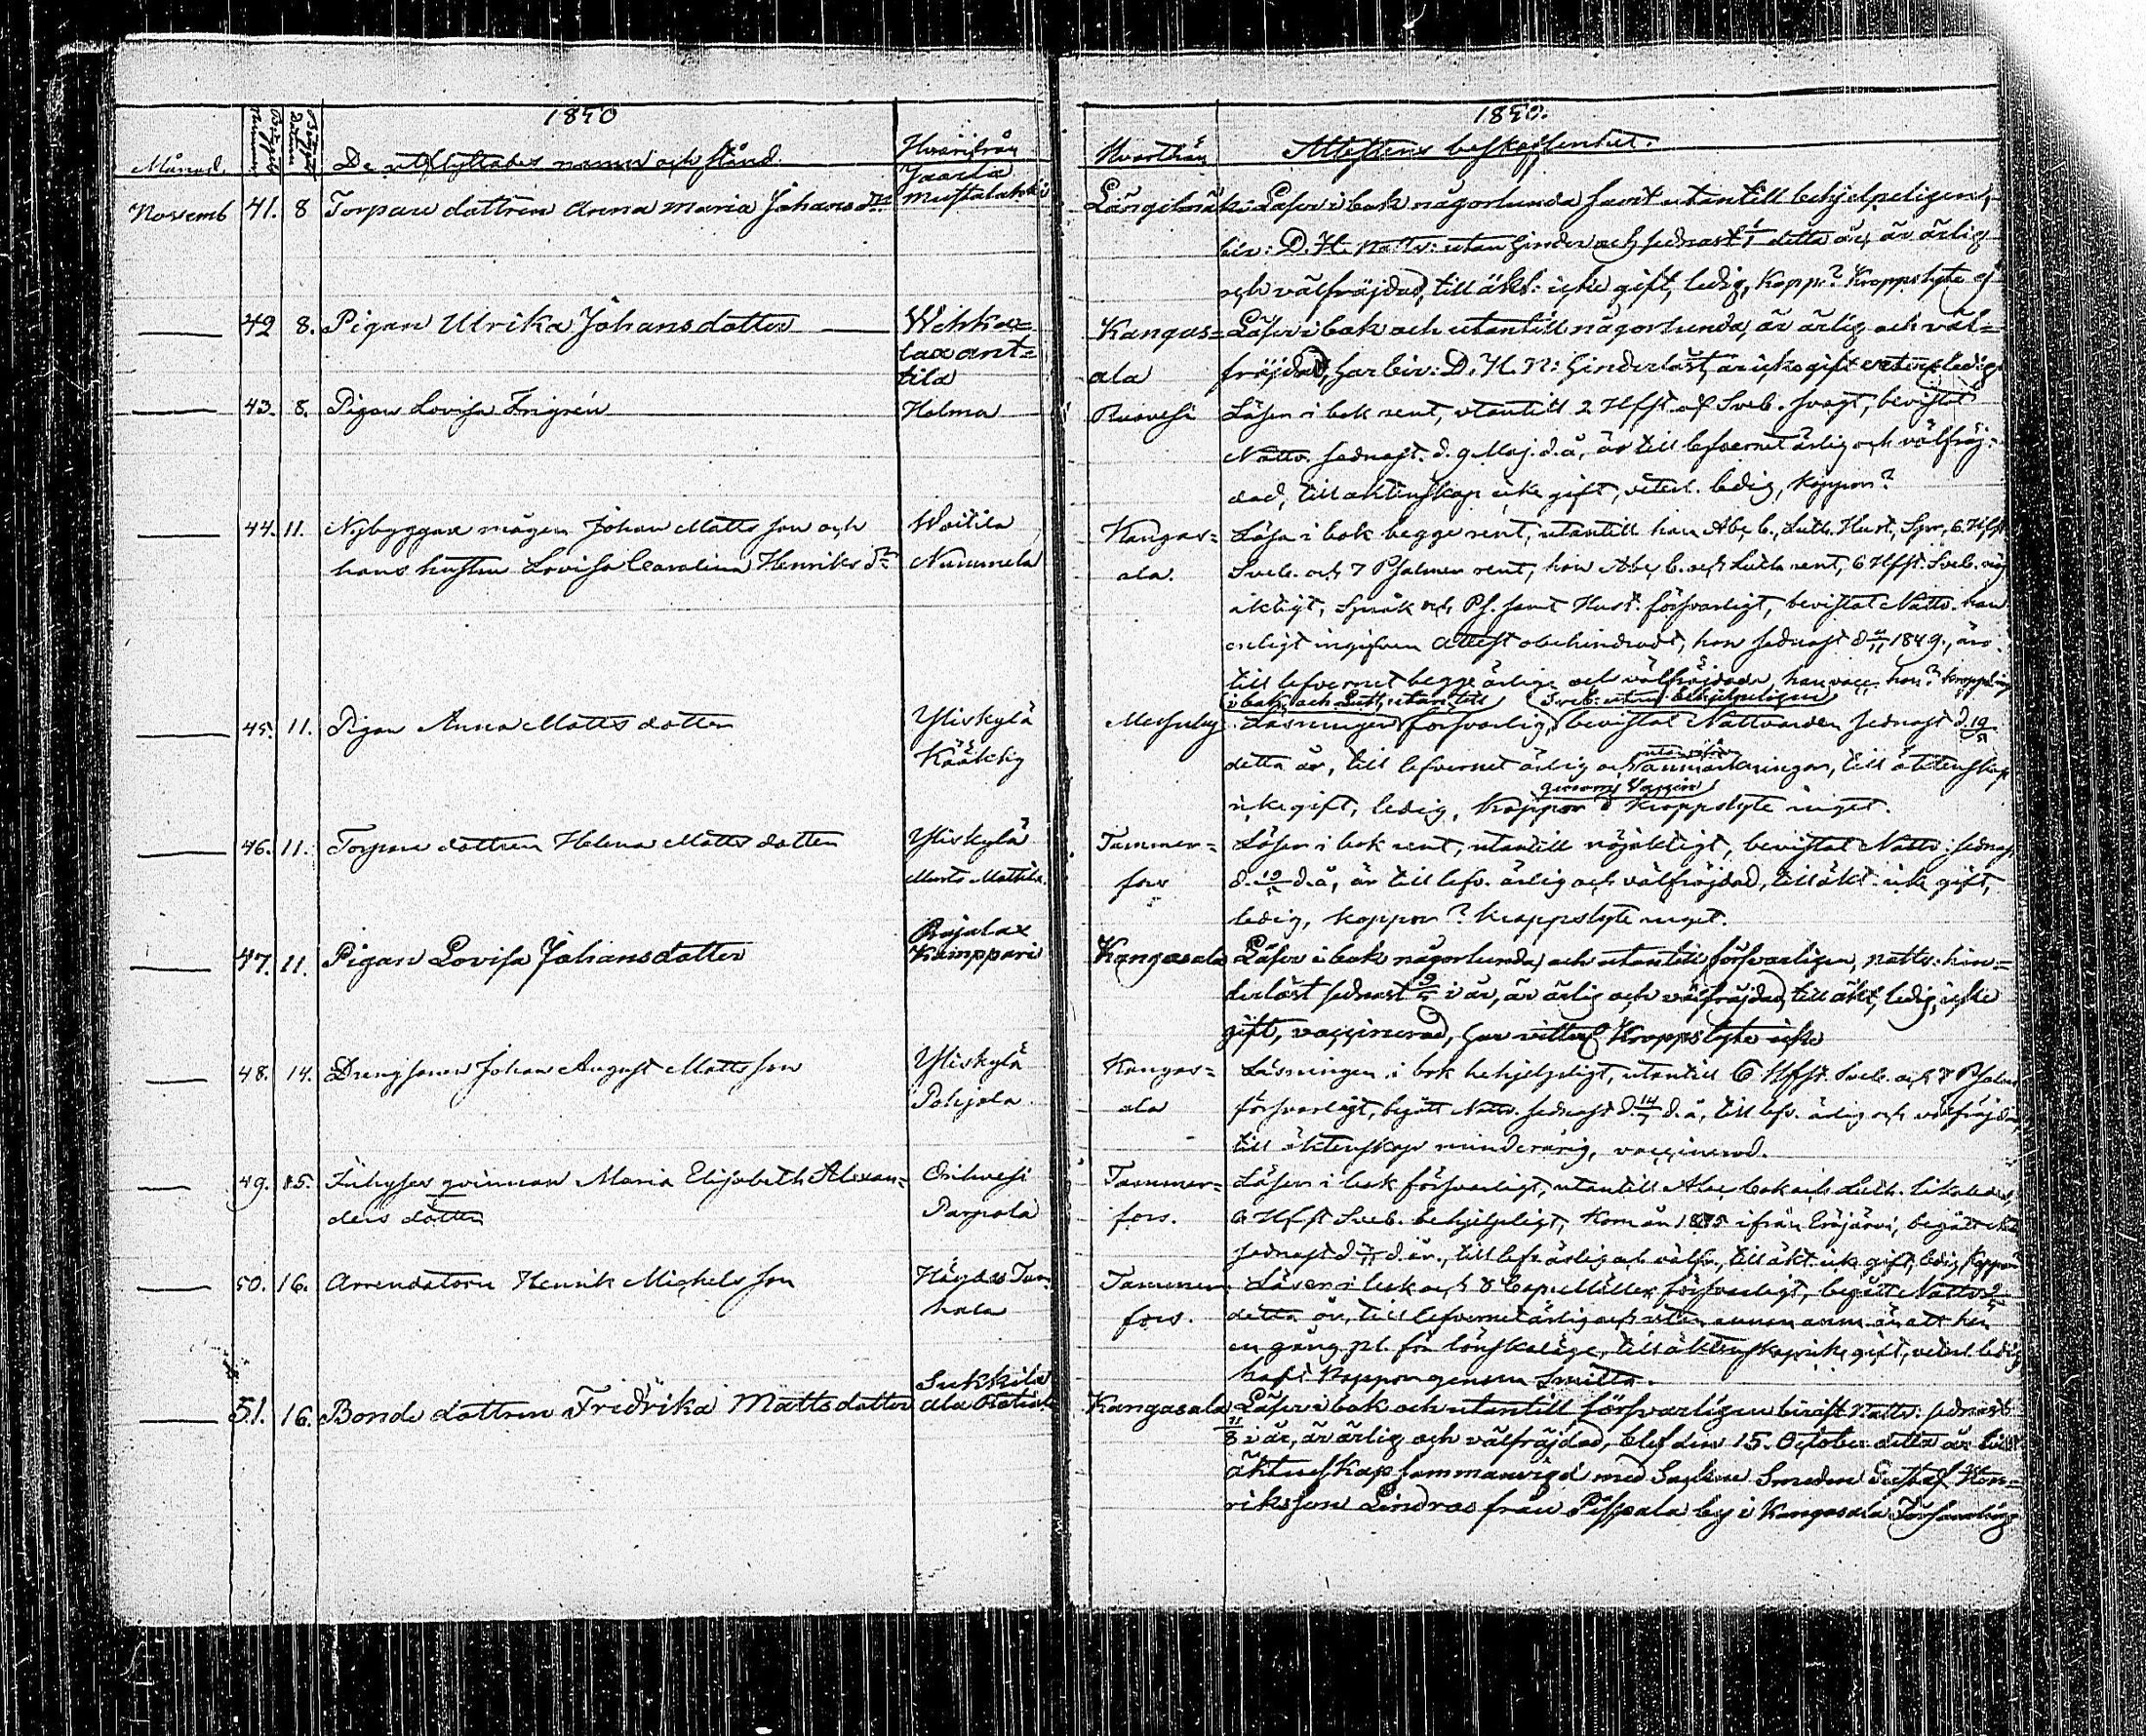 1850
Månad.
Betygets Nummer
Betygets Datum
De utflyttades namn och stånd.
Hvarifrån
Novemb 41. 8 Torpare dottren Anna Maria Johansdr
Jaarla
Mustalahti
42 8. Pigan Ulrika Johansdotter
Wehka=
lax ant=
tila
43. 8. Pigan Lovisa Frigrén
Holma
44. 11. Nybyggare mågen Johan Mattsson och
hans hustru Lovisa Carolina Henriksdr
Woitila
Nummela
45. 11. Pigan Anna Mattsdotter
Yliskylä
46. 11. Torpare dottren Helena Matts dotter
Yliskylä
Mattila
47. 11. Pigan Lovisa Johansdotter
Pajalax
Kimppari
48. 14. Drengsonen Johan August Mattsson
Yliskylä
Pohjola
49. 15. Inhyses qvinnan Maria Elisabeth Alexan=
ders dotter
Orihvesi
Parpola
50. 16. Arrendatorn Henrik Michelsson
51. 16. Bonde dottren Fredrika Mattsdotter
Sukkila
Ala
1850.
Hvarthän
Attestens beskaffenhet.
Längelmäki Läser i bok någorlunda samt utantill behjelpeligen,
biv: D. H. Nattv: utan hinder och sednast detta år, är ärlig
och välfräjdad, till äkt: icke gift, ledig, Kopp? Kroppslyte ej
Kangas= Läser i bok och utantill någorlunda, är ärlig och väl=
ala fräjdad, har biv: D. H. N: hinderlöst, är icke gift ledig
Ruovesi Läser i bok rent, utantill 2 Hfst af Sveb. svagt, bevistat
Nattv. sednast. d. 9 Maj. d. å, är till lefvernet ärlig och välfräj=
dad, till äktenskap icke gift, veterl. ledig, koppor?
Kangas= Läsa i bok begge rent, utantill han Abc b., Luth. Hust. Spr. 6 Hfst
ala. Sveb. och 7 Psalmer rent, hon Abc b. och Luth. rent, 6 Hfst. Sveb. nöj
aktigt, Språk och Ps. samt Hust. försvarligt, bevistat Nattv. han
enligt ingifven Attest obehindradt, hon sednast d 1849., äro
till lefvernet begge ärlige och välfräjdade, han vacc. hon?
i bok och Luth. utan till Sveb. utan behjelpeligen
Messuby Läsningen försvarlig, bevistat Nattvarden sednast d. 19
detta år, till lefvernet ärlig och utan anmärkningar, till äktenskap
genom Vaccin
icke gift, ledig, koppor Kroppslyte inget.
Tammer= Läser i bok rent, utantill nöjaktigt, bevistat Nattv: sednast
fors d. 19 d. å, är till lefv. ärlig och välfräjdad, till äkt. icke gift,
ledig, koppor? kroppslyte inget.
Kangasala Läser i bok någorlunda, och utantill försvarligen, Nattv: hin=
derlöst sednast i år, är ärlig och välfräjdad, till äkt, ledig, icke
gift, vaccinerad, har Kroppslyte icke
Kangas= Läsningen i bok behjelpeligt, utantill 6 Hfst. Sveb. och 7 Psalmer
ala försvarligt, begått Nattv. sednast d. 14 d. å, till lefv. ärlig och välfräjdad,
till äktenskap minderårig, vaccinerad.
Tammer= Läser i bok försvarligt, utantill Abc bok och Luth. likaledes
fors. 6 Hfst Sveb. behjelpeligt, kom år ifrån Eräjärvi, begått
sednast d d. år., till lefv. ärlig och välfr, till äkt. icke gift, ledig, koppor
Tammer= Läser i bok och 8 Cap. Möller försvarligt, begått Nattv
fors. detta år, till lefvernet ärlig och utan annan anm. än att han
en gång pl. för lönskaläge, till äktenskap icke gift, veterl. ledig
haft koppor genom smitta.
Kangasala Läser i bok och utantill försvarligen bivist Nattv: sednast
11/8 i år, är ärlig och välfräjdad, blef den 15. October detta år till
äktenskap sammanvigd med Socknе Smeden Gustaf Hen=
riksson Lindroos från Pispala by i Kangasala Församling